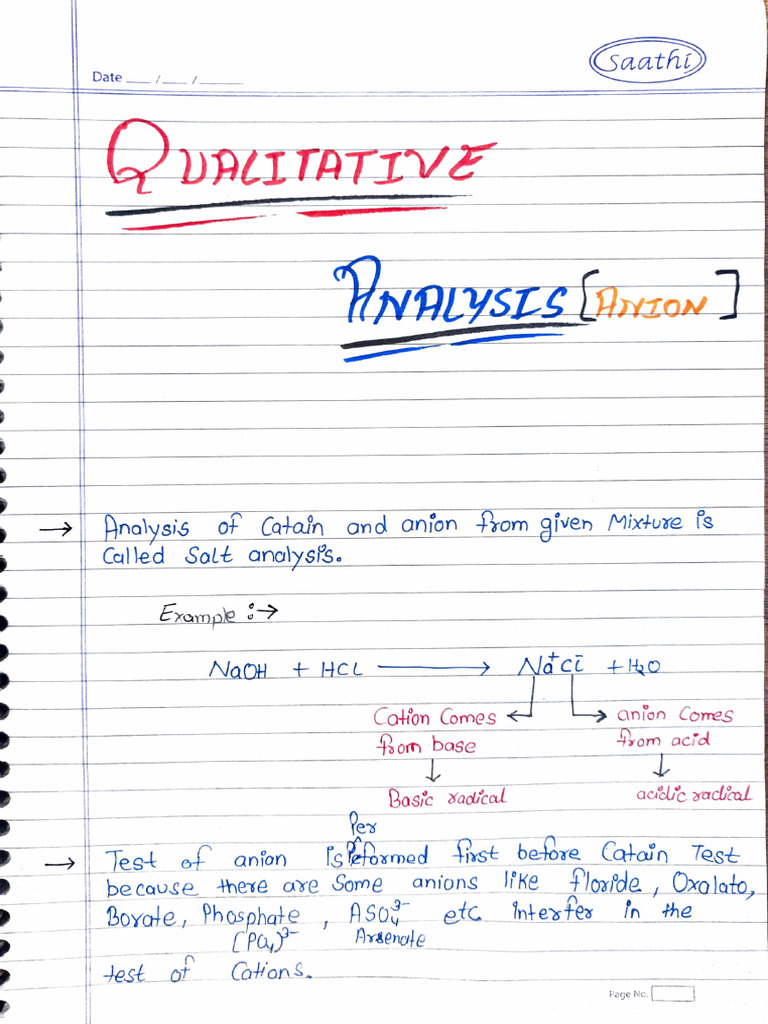 Date ___ /___ / _____
Saathi
QUALITATIVE
ANALYSIS [ANION]
→ Analysis of Catain and anion from given Mixture is
Called Salt analysis.
Example :→
NaOH + HCL ⟶ Na⁺Cl⁻ + H₂O
Cation Comes ← → anion Comes
from base from acid
↓ ↓
Basic radical acidic radical
Per
→ Test of anion is formed first before Catain Test
because there are Some anions like floride, Oxalato,
Borate, Phosphate, ASO₄³⁻ etc interfer in the
[PO₄]³⁻ Arsenate
test of Cations.
Page No.